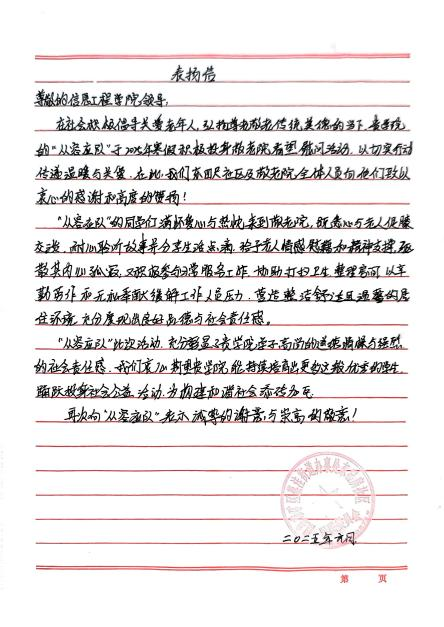 表扬信
尊敬的信息工程学院领导,
在社会积极倡导关爱老年人,弘扬尊老敬老传统美德的当下,贵学院
的“从容应队”于2025年寒假积极投身敬老院看望慰问活动,以切实行动
传递温暖与关爱。在此,我们东田尺社区及敬老院全体人员向他们致以
衷心的感谢和高度的赞扬!
“从容应队”的同学们满怀爱心与热忱来到敬老院,既悉心与老人促膝
交谈,耐心聆听故事并分享生活点滴,给予老人情感慰藉和精神支撑,驱
散其内心孤寂,又积极参与日常服务工作,协助打扫卫生、整理房间,以辛
勤劳作和无私奉献缓解工作人员压力,营造整洁舒适且温馨的居
住环境,充分展现优良品德与社会责任感。
“从容应队”此次活动,充分彰显了贵学院学子高尚的道德情操与强烈
的社会责任感。我们衷心期望贵学院能持续培育出更多这般优秀的学生,
踊跃投身社会公益活动,为构建和谐社会添砖加瓦。
再次向“从容应队”表示诚挚的谢意与崇高的敬意!
二〇二五年元月
第 页